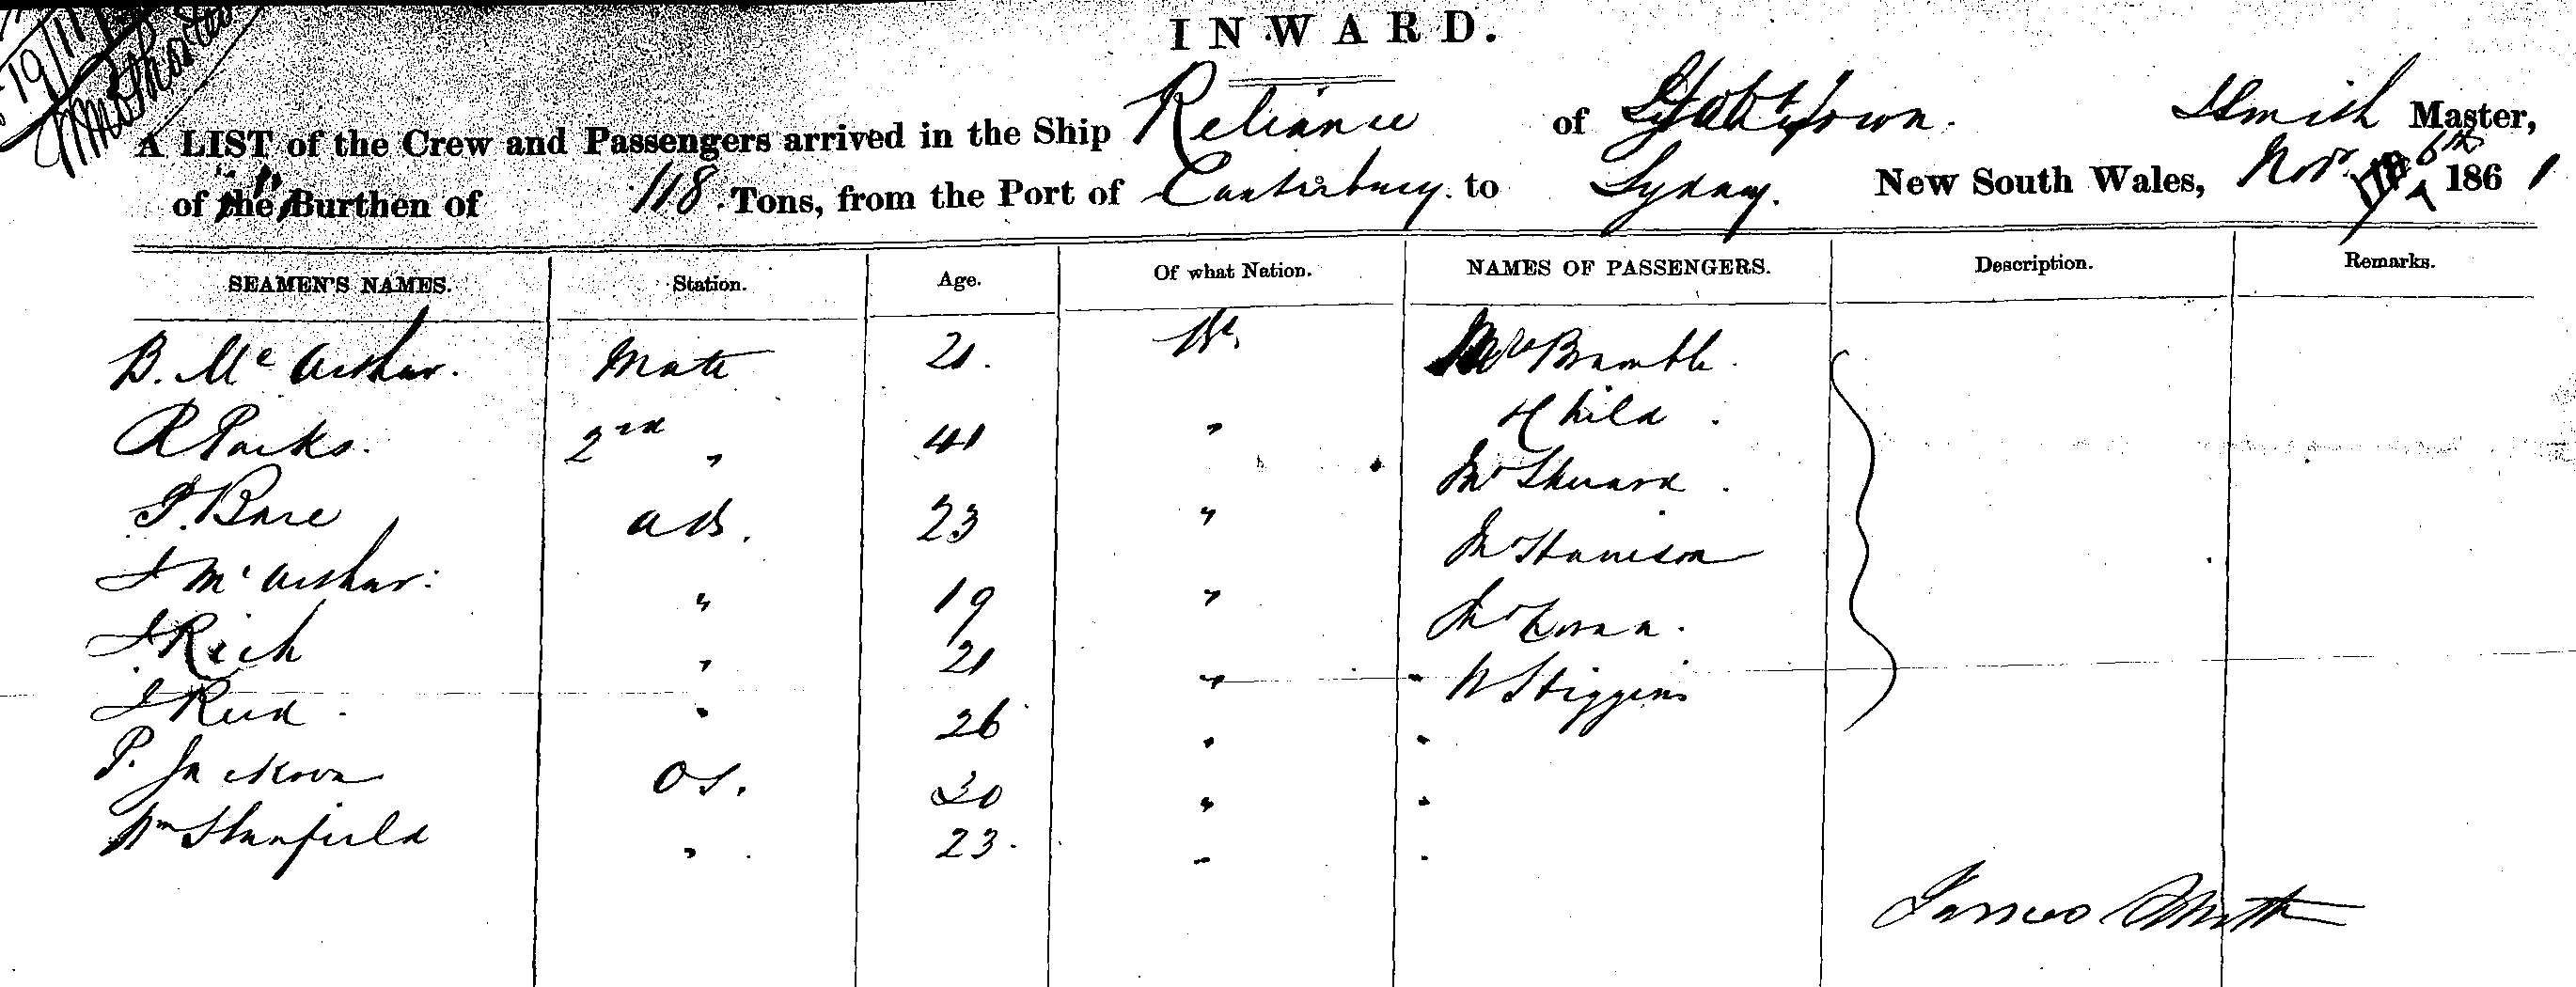 INWARD.
A LIST of the Crew and Passengers arrived in the Ship Reliance of Hobartown. J Smith Master,
of the Burthen of 118 Tons, from the Port of Canterbury to Sydney. New South Wales, Novr. 6th 1861
SEAMEN'S NAMES. Station. Age. Of what Nation. NAMES OF PASSENGERS. Description. Remarks.
B. Mc Arthur. Mate 21. Mrs Bramble.
R Parks. 2nd " 41 " Child.
P. Bare AB. 23 " Mr
J Mc Arthur. " 19 " Mr Harrison
J Rich " 21 " Mr
J Reid. " 26 " W Higgins
P. Jackson OS. 20 "
Wm Stanfield " 23. "
James Smith